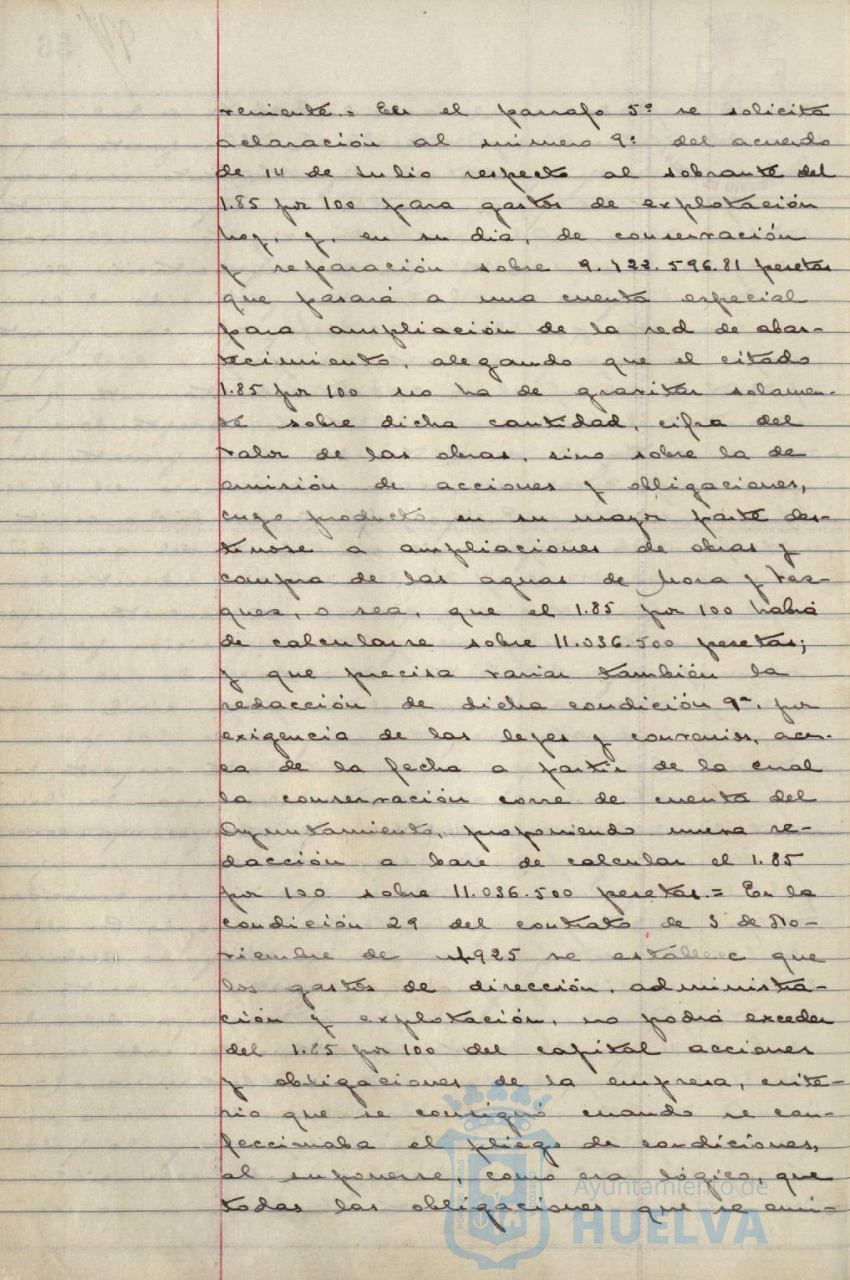 veniente.= En el parrafo 5º se solicita
aclaración al número 9º del acuerdo
de 14 de Julio respecto al sobrante del
1.85 por 100 para gastos de explotación
hoy, y, en su dia, de conservación
y reparación sobre 9.722.596.81 pesetas
que pasará a una cuenta especial
para ampliación de la red de abas-
tecimiento, alegando que el citado
1.85 por 100 no ha de gravitar solamen-
te sobre dicha cantidad, cifra del
valor de las obras, sino sobre la de
emisión de acciones y obligaciones,
cuyo producto en su mayor parte des-
tinose a ampliaciones de obras y
compra de las aguas de Mora y Vaz-
quez, o sea, que el 1.85 por 100 habrá
de calcularse sobre 11.036.500 pesetas;
y que precisa variar también la
redacción de dicha condición 9ª, por
exigencia de las leyes y convenios, acer-
ca de la fecha a partir de la cual
la conservación corre de cuenta del
Ayuntamiento, proponiendo nueva re-
dacción a base de calcular el 1.85
por 100 sobre 11.036.500 pesetas.= En la
condición 29 del contrato de 3 de No-
viembre de 1925 se establece que
los gastos de dirección, administra-
ción y explotación, no podrá exceder
del 1.85 por 100 del capital acciones
y obligaciones de la empresa, crite-
rio que se consignó cuando se con-
feccionaba el pliego de condiciones,
al suponerse, como era lógico, que
todas las obligaciones que se emi-
Ayuntamiento de
HUELVA